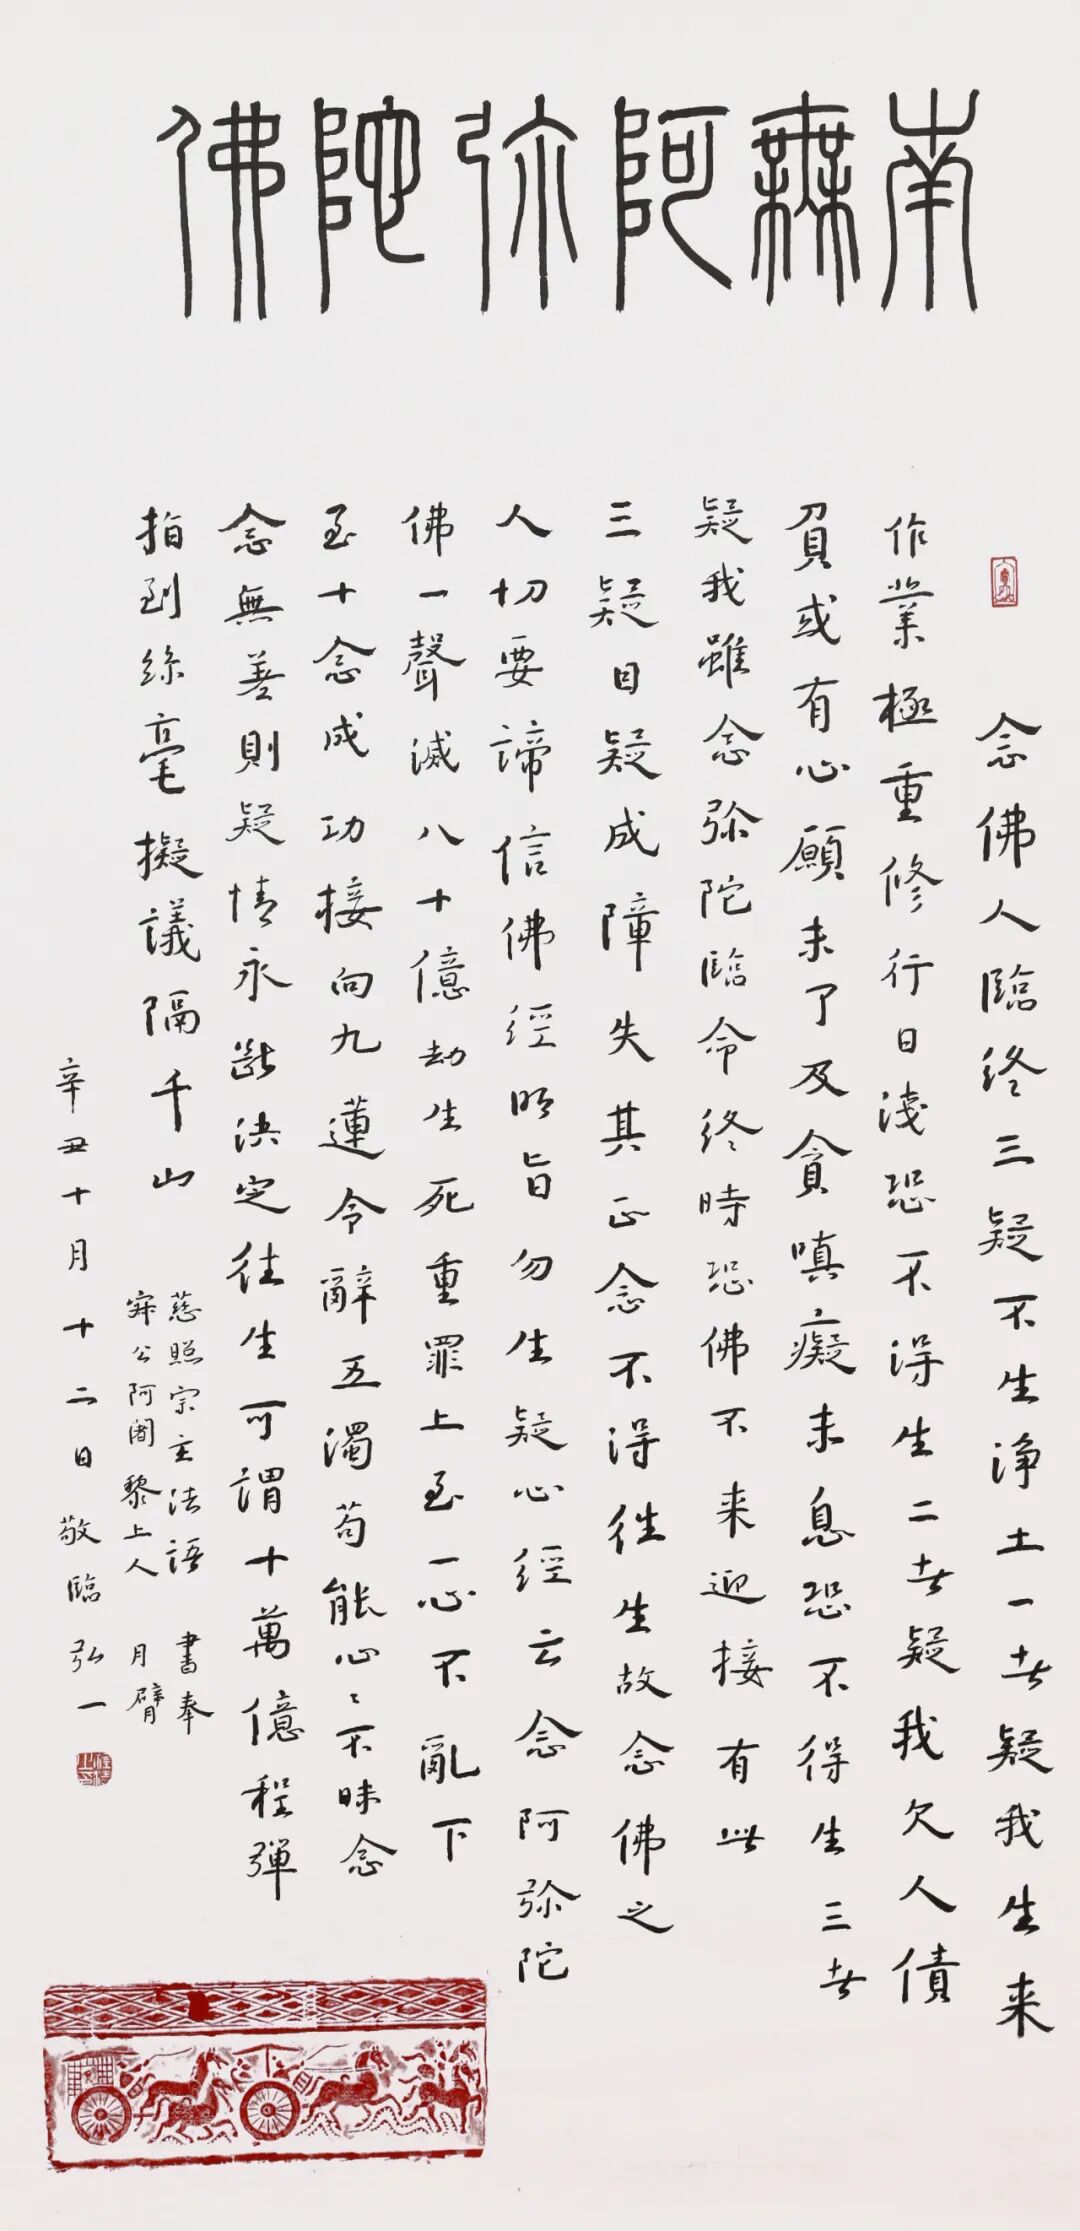 南無阿弥陀佛
念佛人臨終三疑不生浄土一者疑我生来
作業極重修行日淺恐不得生二者疑我欠人債
負或有心願未了及貪嗔癡未息恐不得生三者
疑我雖念弥陀臨命終時恐佛不来迎接有此
三疑因疑成障失其正念不得往生故念佛之
人切要諦信佛經明旨勿生疑心經云念阿弥陀
佛一聲滅八十億劫生死重罪上至一心不亂下
至十念成功接向九蓮令辭五濁苟能心〻不昧念
念無差則疑情永斷決定往生可謂十萬億程彈
指到絲毫擬議隔千山
慈照宗主法語 書奉
寂公阿闍黎上人 月臂
辛丑十月十二日敬臨弘一